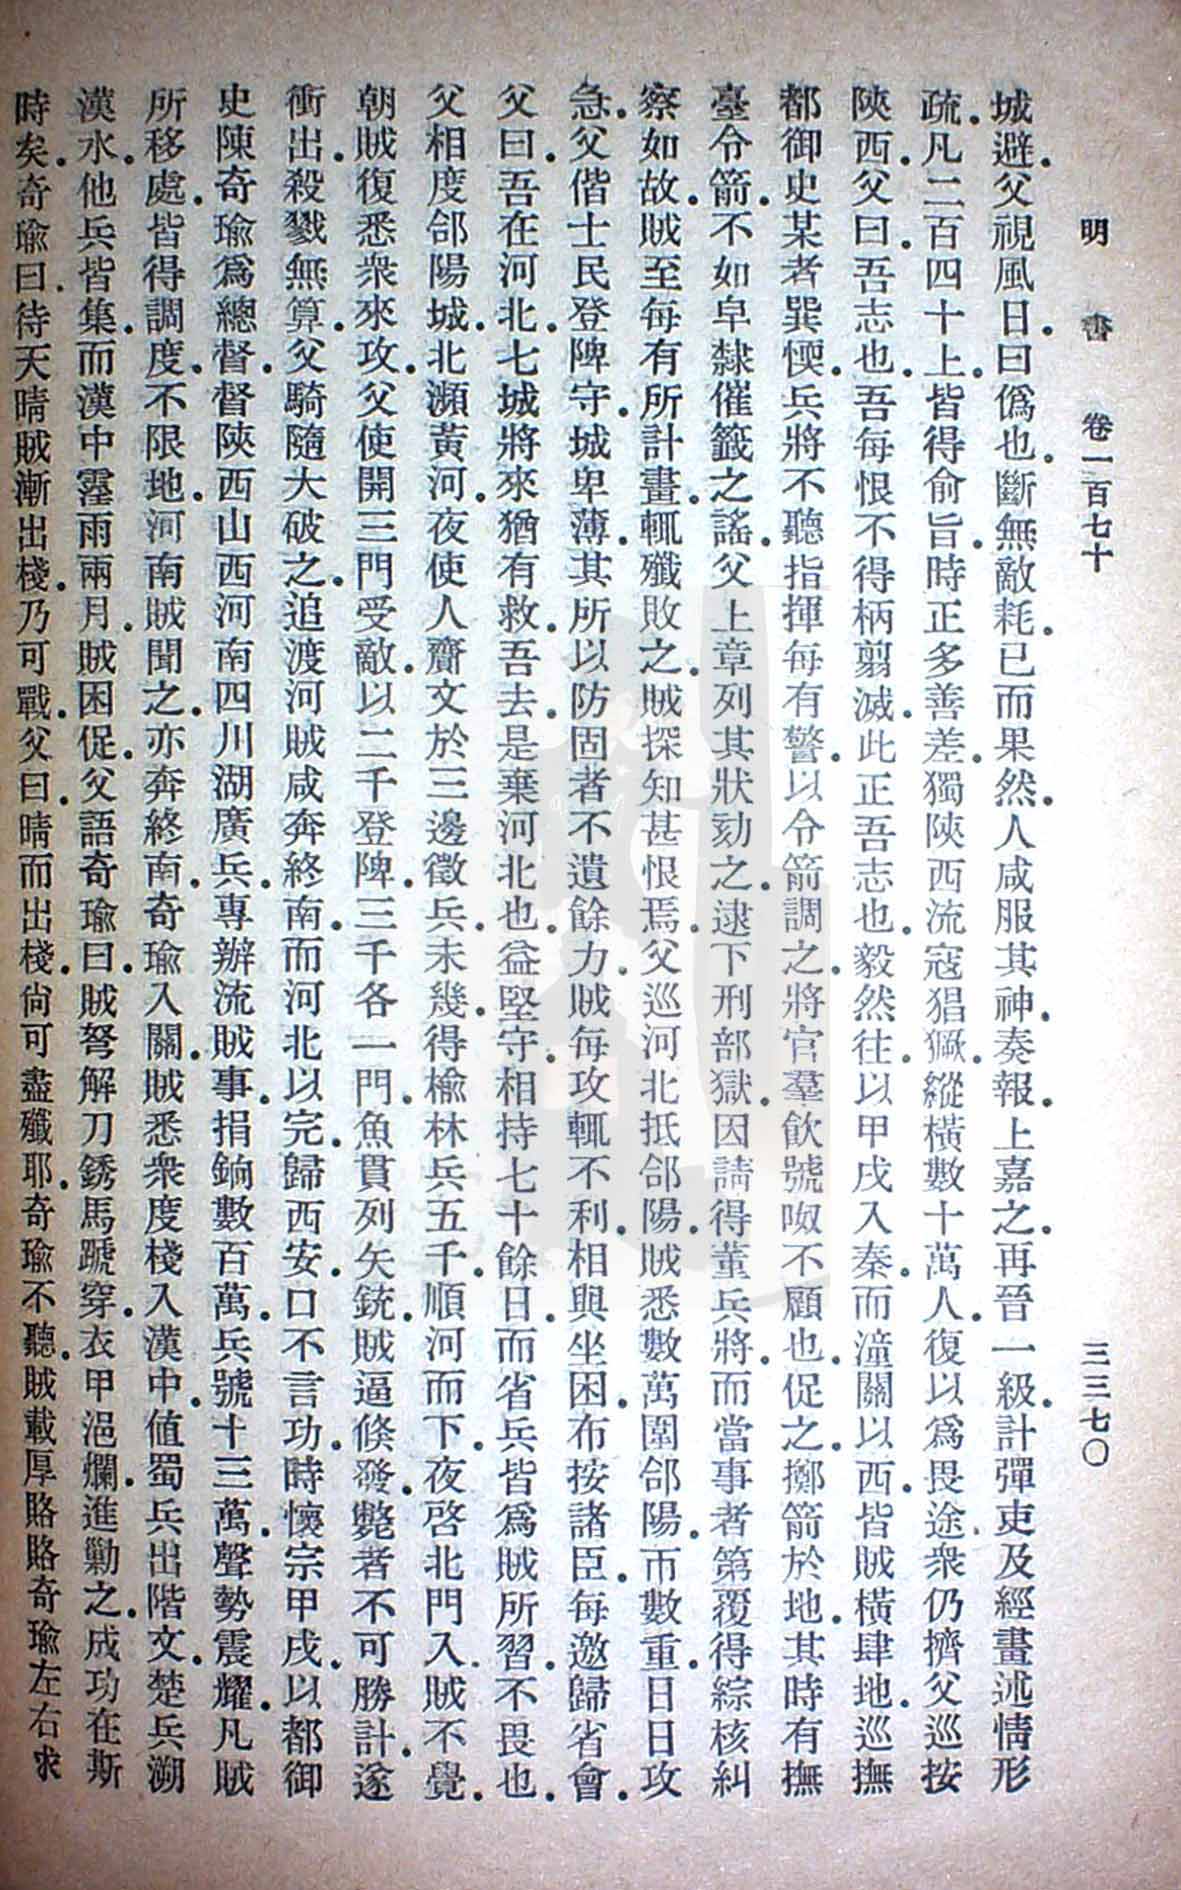 明書 卷一百七十 三三七〇
城避.父視風日.曰僞也.斷無敵耗.已而果然.人咸服其神.奏報.上嘉之.再晉一級.計彈吏及經畫述情形
疏.凡二百四十上.皆得俞旨.時正多善差.獨陝西流寇猖獗.縱橫數十萬人.復以爲畏途.衆仍擠父巡按
陝西.父曰.吾志也.吾每恨不得柄翦滅.此正吾志也.毅然往.以甲戌入秦.而潼關以西.皆賊橫肆地.巡撫
都御史某者巽愞.兵將不聽指揮.每有警.以令箭調之.將官羣飲號呶不顧也.促之.擲箭於地.其時有撫
臺令箭.不如皁隸催籤之謠.父上章列其狀劾之.逮下刑部獄.因請得董兵將.而當事者第覆得綜核糾
察如故.賊至.每有所計畫.輒殲敗之.賊探知甚恨焉.父巡河北.抵郃陽.賊悉數萬圍郃陽.帀數重.日日攻
急.父偕士民登陴守.城卑薄.其所以防固者不遺餘力.賊每攻輒不利.相與坐困.布按諸臣.每邀歸省會.
父曰.吾在河北.七城將來猶有救.吾去.是棄河北也.益堅守.相持七十餘日.而省兵皆爲賊所習.不畏也.
父相度郃陽城.北瀕黃河.夜使人齎文於三邊徵兵.未幾.得榆林兵五千.順河而下.夜啓北門入.賊不覺.
朝賊復悉衆來攻.父使開三門受敵.以二千登陴.三千各一門.魚貫列矢銃.賊逼.倏發.斃者不可勝計.遂
衝出.殺戮無算.父騎隨大破之.追渡河.賊咸奔終南.而河北以完.歸西安.口不言功.時懷宗甲戌.以都御
史陳奇瑜爲總督.督陝西山西河南四川湖廣兵.專辦流賊事.捐餉數百萬.兵號十三萬.聲勢震耀.凡賊
所移處.皆得調度.不限地.河南賊聞之.亦奔終南.奇瑜入關.賊悉衆度棧入漢中.値蜀兵出階文.楚兵溯
漢水.他兵皆集.而漢中霪雨兩月.賊困促.父語奇瑜曰.賊弩解刀銹.馬蹏穿.衣甲浥爛.進勦之.成功在斯
時矣.奇瑜曰.待天晴賊漸出棧.乃可戰.父曰.晴而出棧.尙可盡殲耶.奇瑜不聽.賊載厚賂賂奇瑜左右求